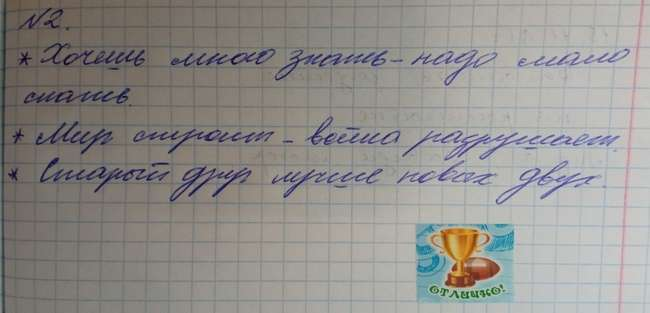 №2.
* Хочешь много знать – надо мало
спать.
* Мир строит – война разрушает.
* Старый друг лучше новых двух.
ОТЛИЧНО!